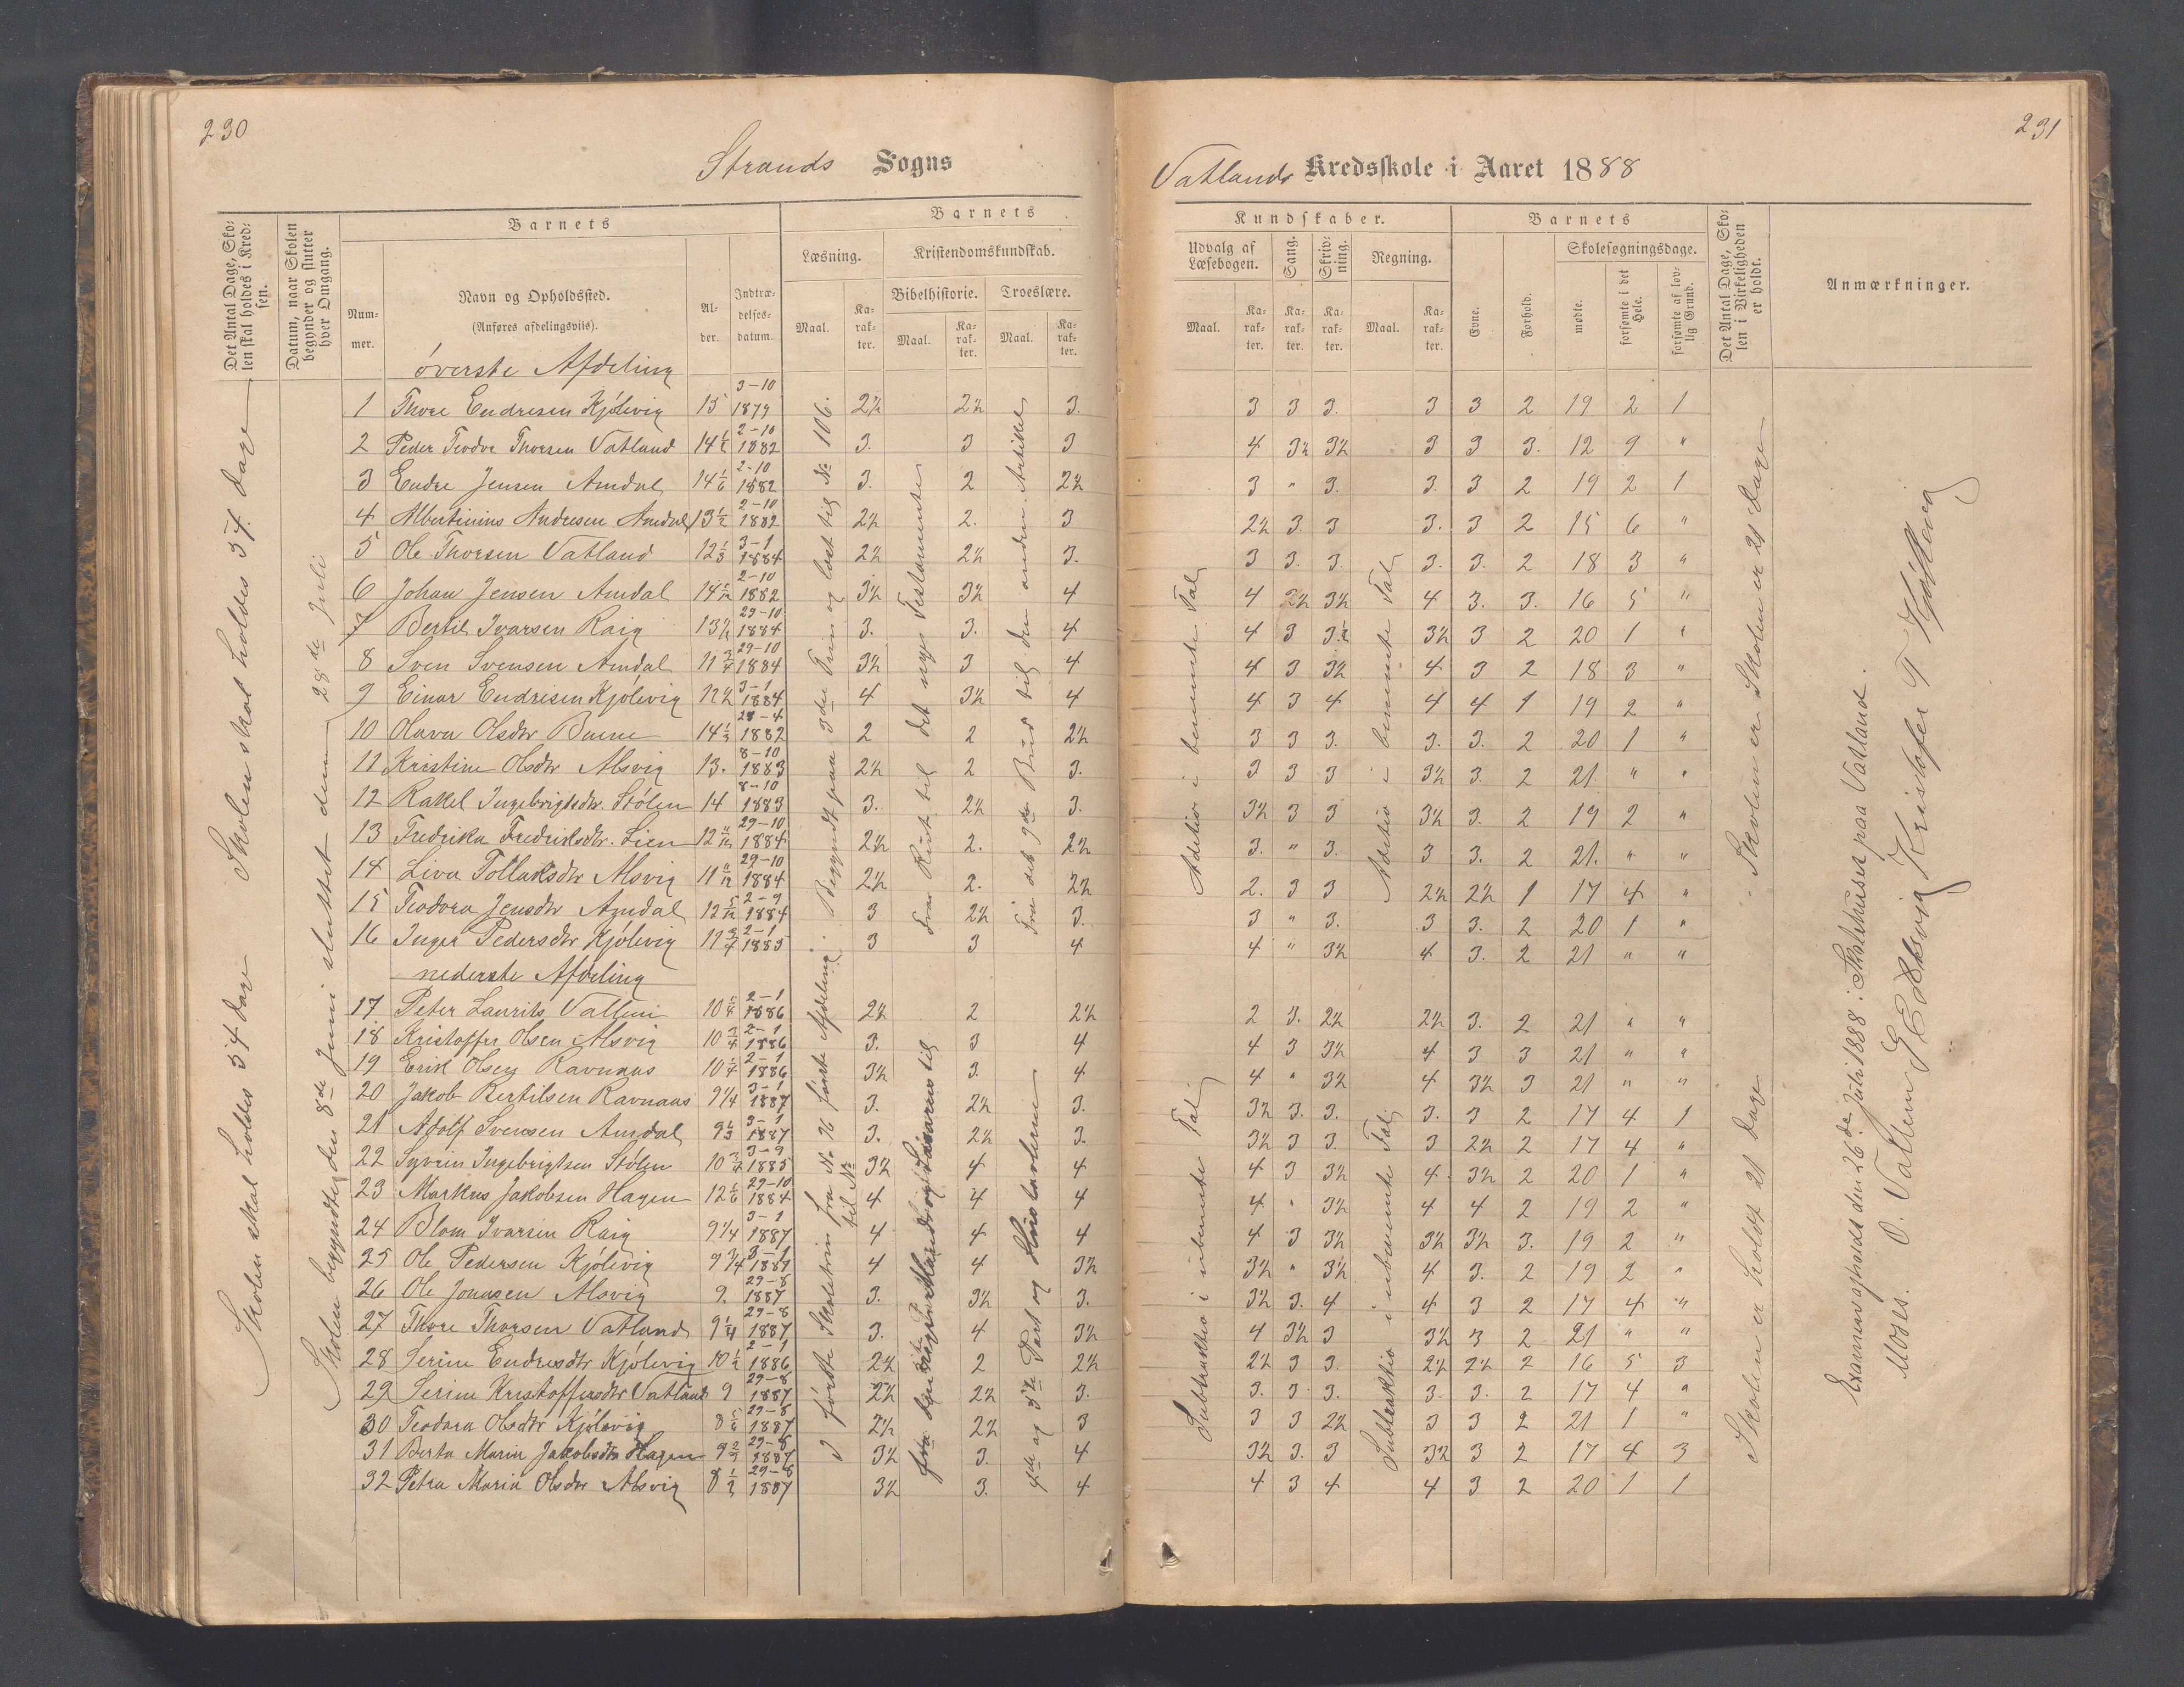 230
Strands Sogns
Det Antal Dage, Sko-
len skal holdes i Kred-
sen.
Datum, naar Skolen
begynder og slutter
hver Omgang.
Barnets
Num-
mer.
Navn og Opholdssted.
(Anføres afdelingsviis).
Al-
der.
Indtræ-
delses-
datum.
Barnets
Læsning.
Kristendomskundskab.
Bibelhistorie.
Troeslære.
Maal.
Ka-
rak-
ter.
Maal.
Ka-
rak-
ter.
Maal.
Ka-
rak-
ter.
Skolen skal holdes 34 Dage Skolen skal holdes 34. Dage
Skolen begyndte den 8de Juni sluttet den 28de Juli
øverste Afdeling
1 Thore Endresen Kjølevig 15 3-10 1879 2½ 2½ 3.
2 Peder Teodor Thorsen Vatland 14½ 2-10 1882 3. 3 3
3 Endre Jensen Amdal 14 1/6 2-10 1882 3. 2 2½
4 Albertinius Andresen Amdal 13½ 2-10 1882 2½ 2. 3
5 Ole Thorsen Vatland 12 1/3 3-1 1884 2½ 2½ 3.
6 Johan Jensen Amdal 14 2-10 1882 3½ 3½ 4
7 Bertil Ivarsen Raig 13½ 29-10 1884 3. 3. 4
8 Sven Svensen Amdal 11 3/4 29-10 1884 3½ 3 4
9 Einar Endrisen Kjølevig 12½ 3-1 1884 4 3½ 4
10 Olava Olsdtr 14 1/3 28-4 1882 2 2 2½
11 Kristine Olsdtr Alsvig 13. 8-10 1883 2½ 2 3.
12 Rakel Ingebrigtsdtr. Stølen 14 8-10 1883 3. 2½ 3.
13 Fredrika Fredriksdtr. Lien 12 29-10 1884 2½ 2. 2½
14 Liva Tollaksdtr Alsvig 11 29-10 1884 2½ 2. 2½
15 Teodora Jensdtr Amdal 12 5/12 2-9 1884 3 2½ 3.
16 Inger Pedersdtr Kjølevig 11 3/4 2-1 1885 3 3 4
nederste Afdeling
17 Peter Laurits Valleni 10 1/4 2-1 1886 2½ 2 2½
18 Kristoffer Olsen Alsvig 10 3/4 2-1 1886 3. 3 4
19 Erik Olsen Ravnaas 10 1/4 2-1 1886 3½ 3. 4
20 Jakob Bertilsen Ravnaas 9 1/4 3-1 1887 3. 2½ 3.
21 Adolf Svensen Amdal 9 1/3 3-1 1887 3. 2½ 3.
22 Syvrin Ingebrigtsen Stølen 10 3/4 3-9 1885 3½ 4 4
23 Markus Jakobsen Hagen 12 1/6 29-10 1884 4 4 4
24 Blom Ivarsen Raig 9 1/4 3-1 1887 4 4 4
25 Ole Pedersen Kjølevig 9 1/4 3-1 1887 4 4 3½
26 Ole Jonasen Alsvig 9. 29-8 1887 3. 3½ 3.
27 Thore Thorsen Vatland 9 1/4 29-8 1887 3. 4 3½
28 Serine Endresdtr Kjølevig 10½ 2-1 1886 2½ 2 2½
29 Serine Kristoffersdtr Vatland 9 29-8 1887 2½ 2½ 3.
30 Teodora Olsdtr Kjølevig 8 5/6 29-8 1887 2½ 2½ 3
31 Berta Maria Jakobsdtr Hagen 9 2/3 29-8 1887 3½ 3. 4
32 Petra Maria Olsdtr Alsvig 8 1/2 29-8 1887 3½ 3. 4
Begyndt paa 3die Trin og læst til No 106.
Fra Krist til det nye Testamente
Fra det 9de Bud til den anden Artikel
I første Skoletrin fra No 76 første Afdeling til No
4de og 5te Part og Hustavlerne
231
Vatlands Kredsskole i Aaret 1888
Kundskaber.
Udvalg af
Læsebogen.
Sang.
Skriv-
ning.
Regning.
Maal.
Ka-
rak-
ter.
Ka-
rak-
ter.
Ka-
rak-
ter.
Maal.
Ka-
rak-
ter.
Barnets
Evne.
Forhold.
Skolesøgningsdage.
mødte.
forsømte i det
Hele.
forsømte af lov-
lig Grund.
Det Antal Dage, Sko-
len i Virkeligheden
er holdt.
Anmærkninger.
3 3 3. 3 3 2 19 2 1
4 3½ 3½ 3 3 3. 12 9 "
3 " 3. 3. 3 2 19 2 1
2½ 3. 3 3. 3 2 15 6 "
3 3. 3. 3. 3. 2 18 3 "
4 2½ 3½ 4 3. 3. 16 5 "
4 3 3.½ 3½ 3 2 20 1 "
4 3 3½ 4 3 2 18 3 "
4 3 4 4 4 1 19 2 "
3 3 3. 3. 3. 2 20 1 "
3 3 3 3½ 3. 2 21 " "
3½ 3 3 3½ 3. 2 19 2 "
3. " 3. 3 3. 2 21. " "
2. 3 3 2½ 2½ 1 17 4 "
3 " 3. 3 3. 2 20 1 "
4 " 3½ 4 3. 2 21 " "
2 3. 2½ 2½ 3. 2 21 " "
4 3 3½ 4 3 3 21 " "
4 " 3½ 4 3½ 3 21 " "
3½ 3. 3. 3. 3 2 17 4 1
3½ 3 3. 3 2½ 2 17 4 "
4 3 3½ 4 3½ 2 20 1 "
4 " 3½ 4 4 2 19 2 "
4 3 3½ 3½ 3½ 3. 19 2 "
3½ " 3½ 4 3. 2 19 2 "
3½ 3. 4 4 3 2 17 4 "
4 3½ 3 3½ 3 2 21 " "
2½ 3 3. 2½ 2½ 2 16 5 3
3. 3. 3. 3. 3. 2 17 4 "
3 3 2½ 3 3 2 21 1 "
3½ 3. 3 3½ 3 2 17 4 3
4 3 4 4 3 2 20 1 1
Aditio i benemte Tal
Aditio i benemte Tal
Subtraktio i ubenemte Tal
Subtraktio i ubenemte Tal
Skolen er holdt 21 Dage - Skolen er Skolen er 21 Dage
Examen afholdes den 26de Juli 1888 i Skolehuset paa Vatland.
O. Valleni Kristofer T Kjøllevig
Moses.